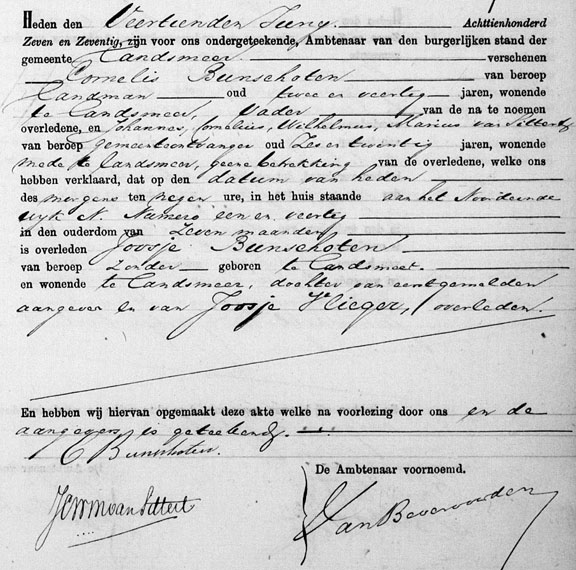 Heden den Veertienden Juny Achttienhonderd
Zeven en Zeventig, zijn voor ons ondergeteekende, Ambtenaar van den burgerlijken stand der
gemeente Landsmeer verschenen
Cornelis Bunschoten van beroep
Landman oud twee en veertig jaren, wonende
te Landsmeer, Vader van de na te noemen
overledene, en Johannes, Cornelius, Wilhelmus, Marius van Sittert
van beroep gemeenteontvanger oud Zes en twintig jaren, wonende
mede te Landsmeer, geene betrekking van de overledene, welke ons
hebben verklaard, dat op den datum van heden
des morgens ten negen ure, in het huis staande aan het Noordeinde
wyk N. Numero een en veertig
in den ouderdom van Zeven maanden
is overleden Joosje Bunschoten
van beroep Zonder geboren te Landsmeer.
en wonende te Landsmeer, dochter van eerstgemelden
aangever en van Joosje Vlieger, overleden.
En hebben wij hiervan opgemaakt deze akte welke na voorlezing door ons en de
aangevers is geteekend.
C Bunschoten.
De Ambtenaar voornoemd.
JCWM van Sittert
Van Beverwoorden